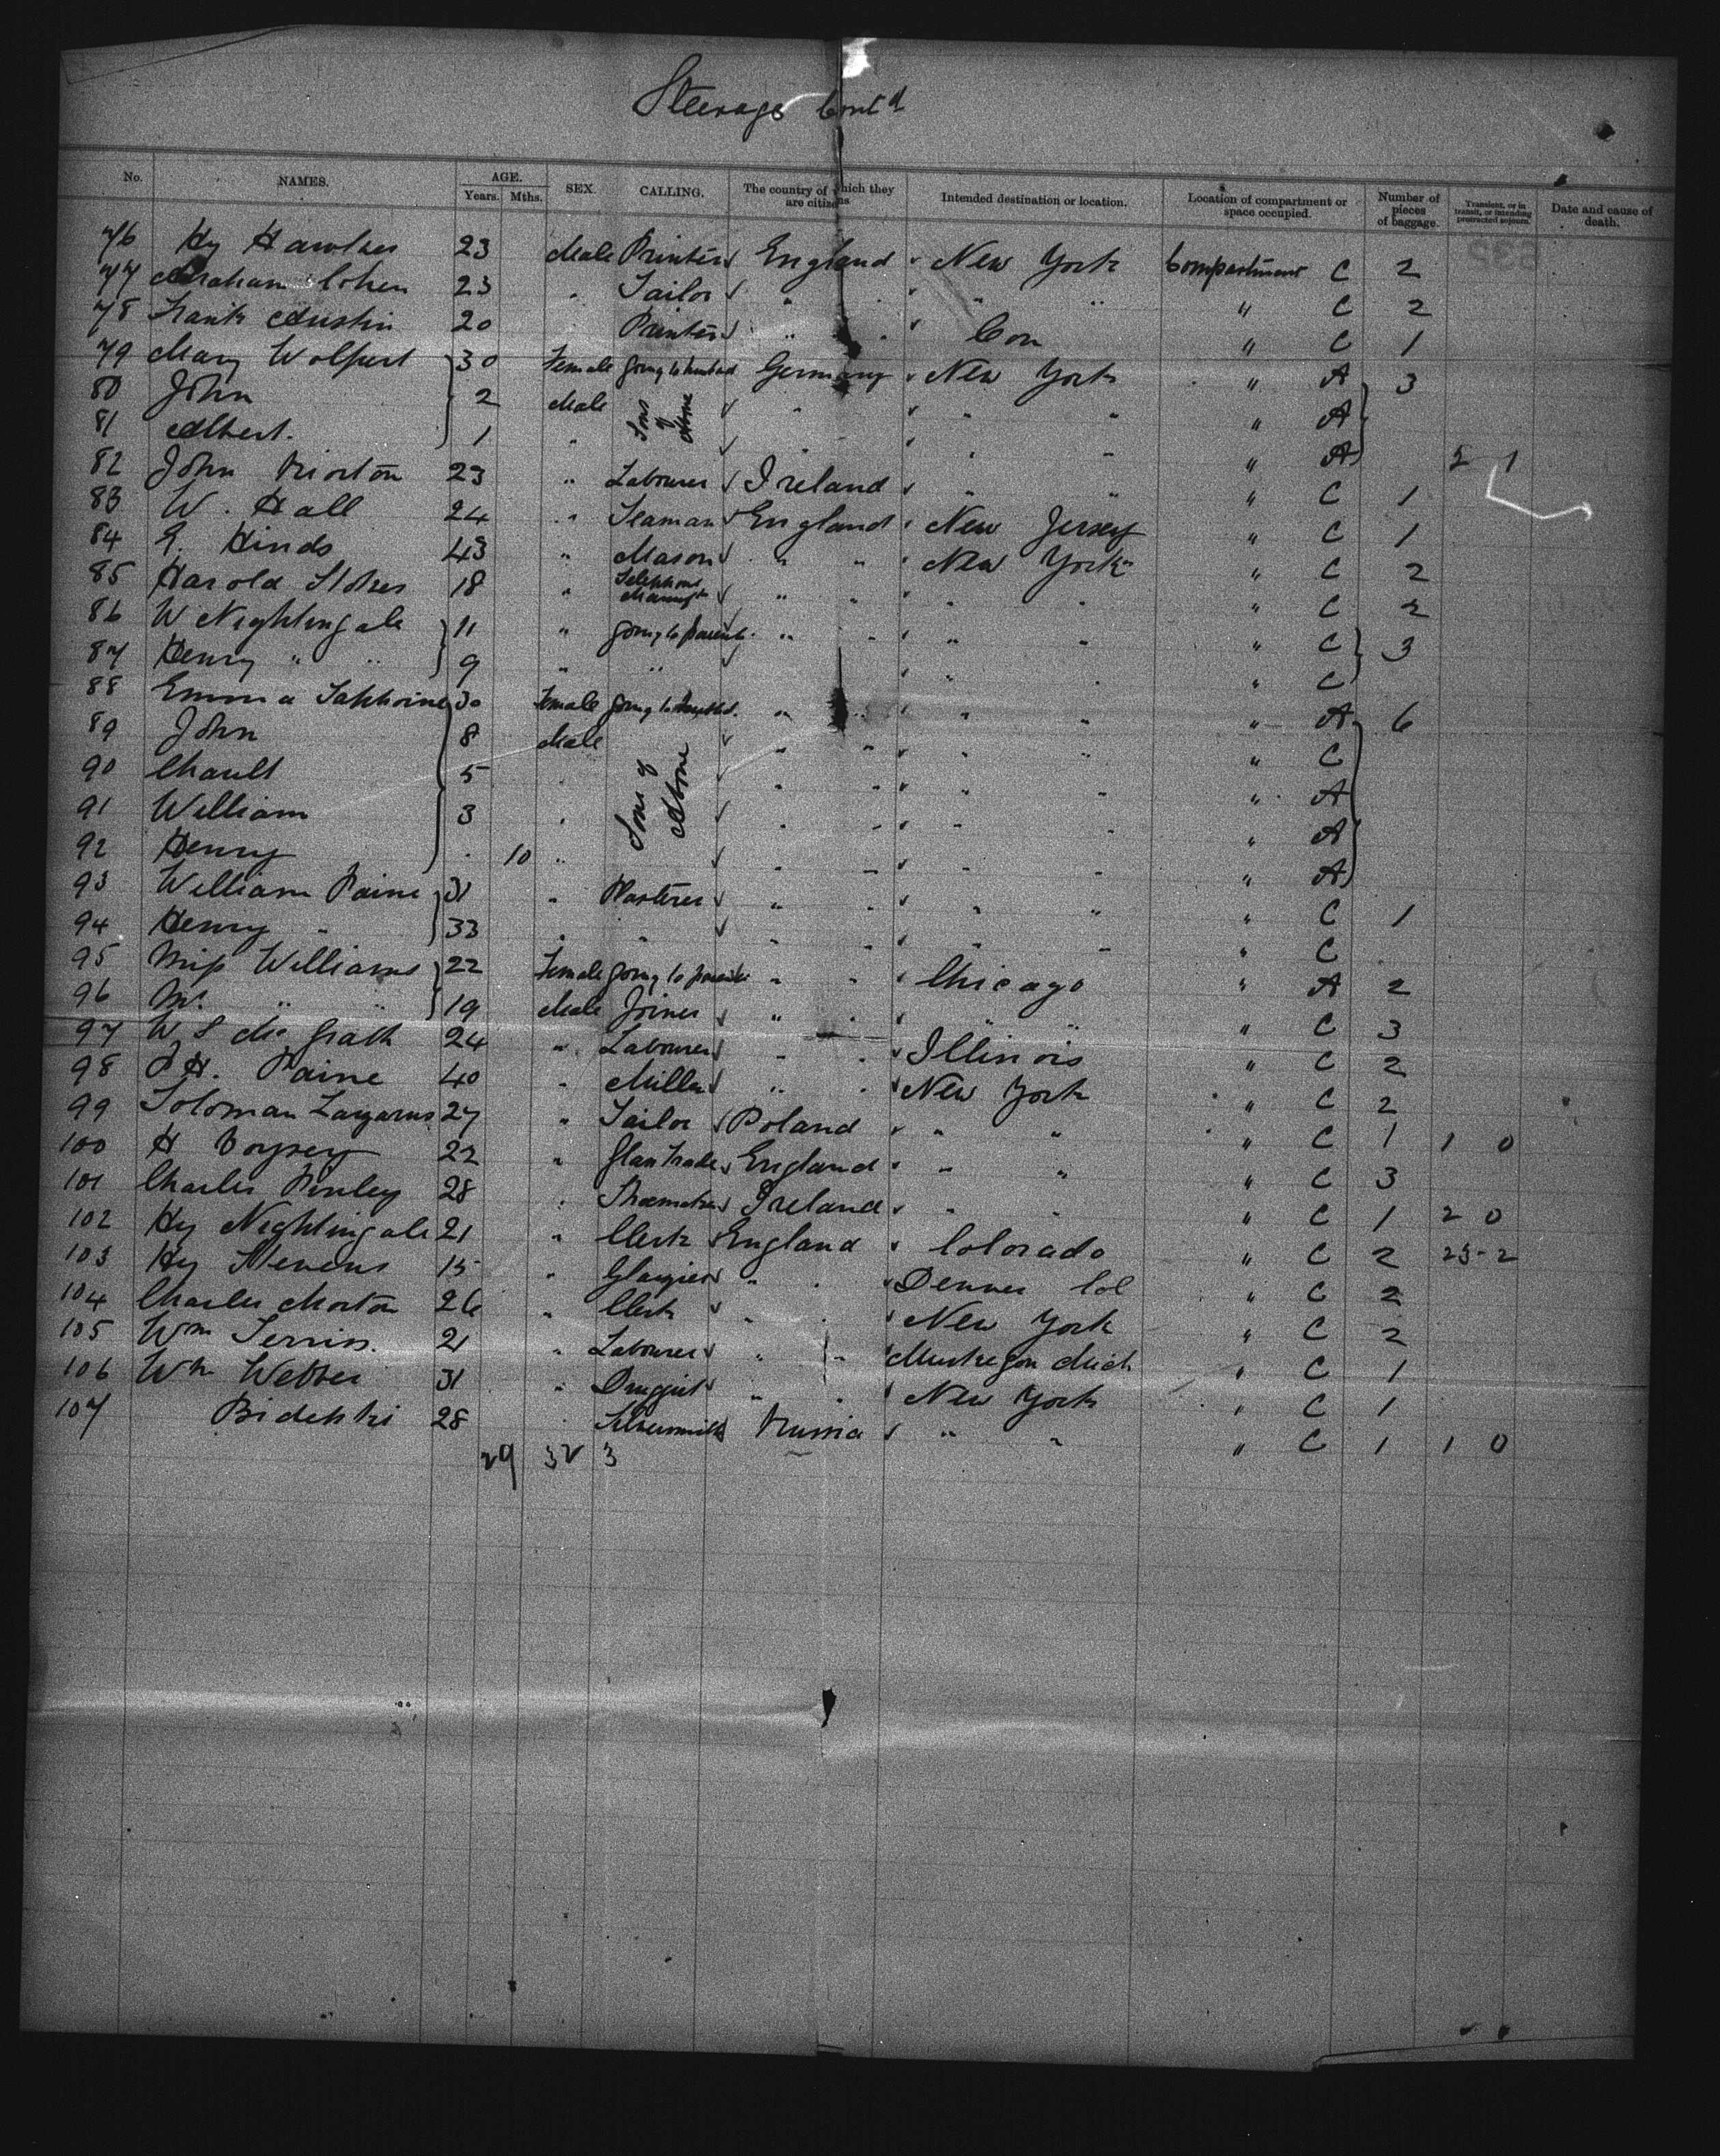 Steerage Cont'd
No. NAMES. AGE. Years. Mths. SEX. CALLING. The country of which they are citizens Intended destination or location. Location of compartment or space occupied. Number of pieces of baggage. Transient, or in transit, or intending protracted sojourn. Date and cause of death.
76 Hy Hawkes 23 Male Printer England New York Compartment C 2
77 Abraham Cohen 23 " Tailor " " " " " C 2
78 Frank Austin 20 Printer " " Con " C 1
79 Mary Wolfert 30 Female going to husband Germany New York " A 3
80 John 2 Male Sons of Above " " " " A
81 Albert. 1 " " " " A 2 1
82 John Norton 23 " Labourer Ireland " " " C 1
83 W. Hall 24 " Seaman England New Jersey " C 1
84 E. Hinds 43 " Mason " " New York " C 2
85 Harold Stokes 18 " Telephone " " " " " C 2
86 W Nightingale 11 " going to parents " " " " " C 3
87 Henry " " 9 " " " " " C
88 Emma 30 Female going to husbd. " " " " " A 6
89 John 8 Male Sons of Above " " " " " C
90 5 " " " " " " A
91 William 3 " " " " " " A
92 Henry 10 " " " " " " A
93 William Paine 31 " Plasterer " " " " " C 1
94 Henry " 33 " " " " " " " C
95 Miss Williams 22 Female going to parents " " Chicago " A 2
96 Mr. " " 19 Male Joiner " " " " " C 3
97 W S McGrath 24 " Labourer " " Illinois " C 2
98 H. Paine 40 " Miller " " New York " C 2
99 Soloman Lazarus 27 " Tailor Poland " " " C 1 1 0
100 H Voysey 22 " Glass Trade England " " " C 3
101 Charles Finley 28 " Shoemaker Ireland " " " C 1 2 0
102 Hy Nightingale 21 " Clerk England Colorado " C 2 23-2
103 Hy Stevens 15 " Glazier " " Denver Col " C 2
104 Charles Morton 26 " Clerk " " New York " C 2
105 Wm Terriss. 21 " Labourer " " Muskegon Mich " C 1
106 Wm Webber 31 " Druggist " " New York " C 1
107 28 " Silversmith Russia " " " C 1 1 0
29 32 3